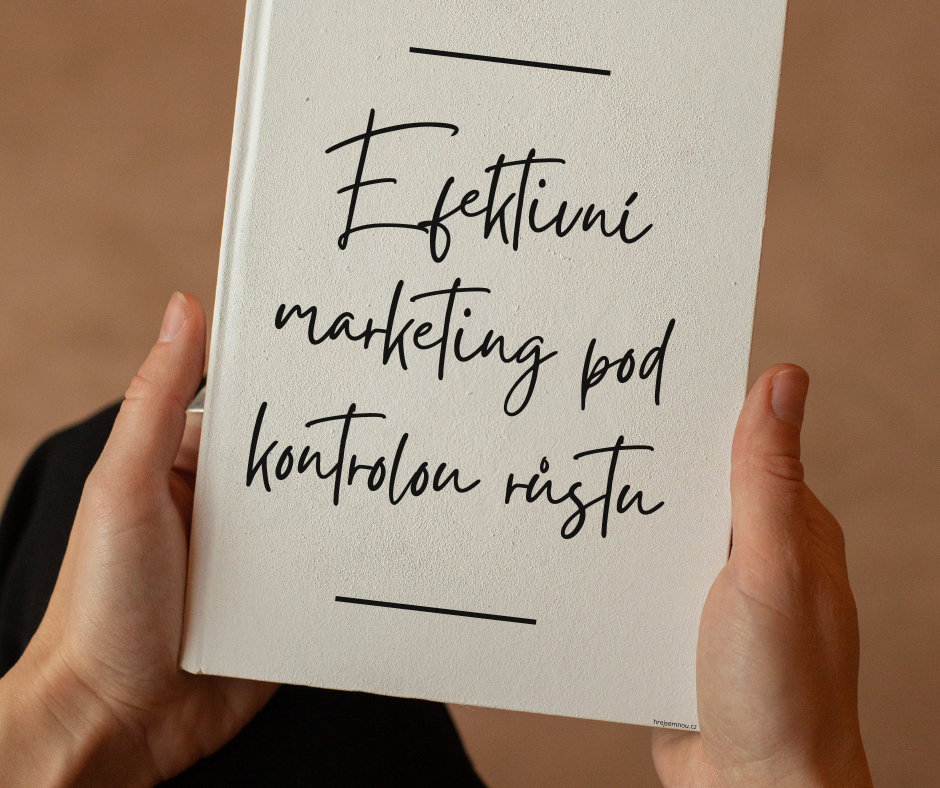 Efektivní
marketing pod
kontrolou růstu
hrejsemnou.cz